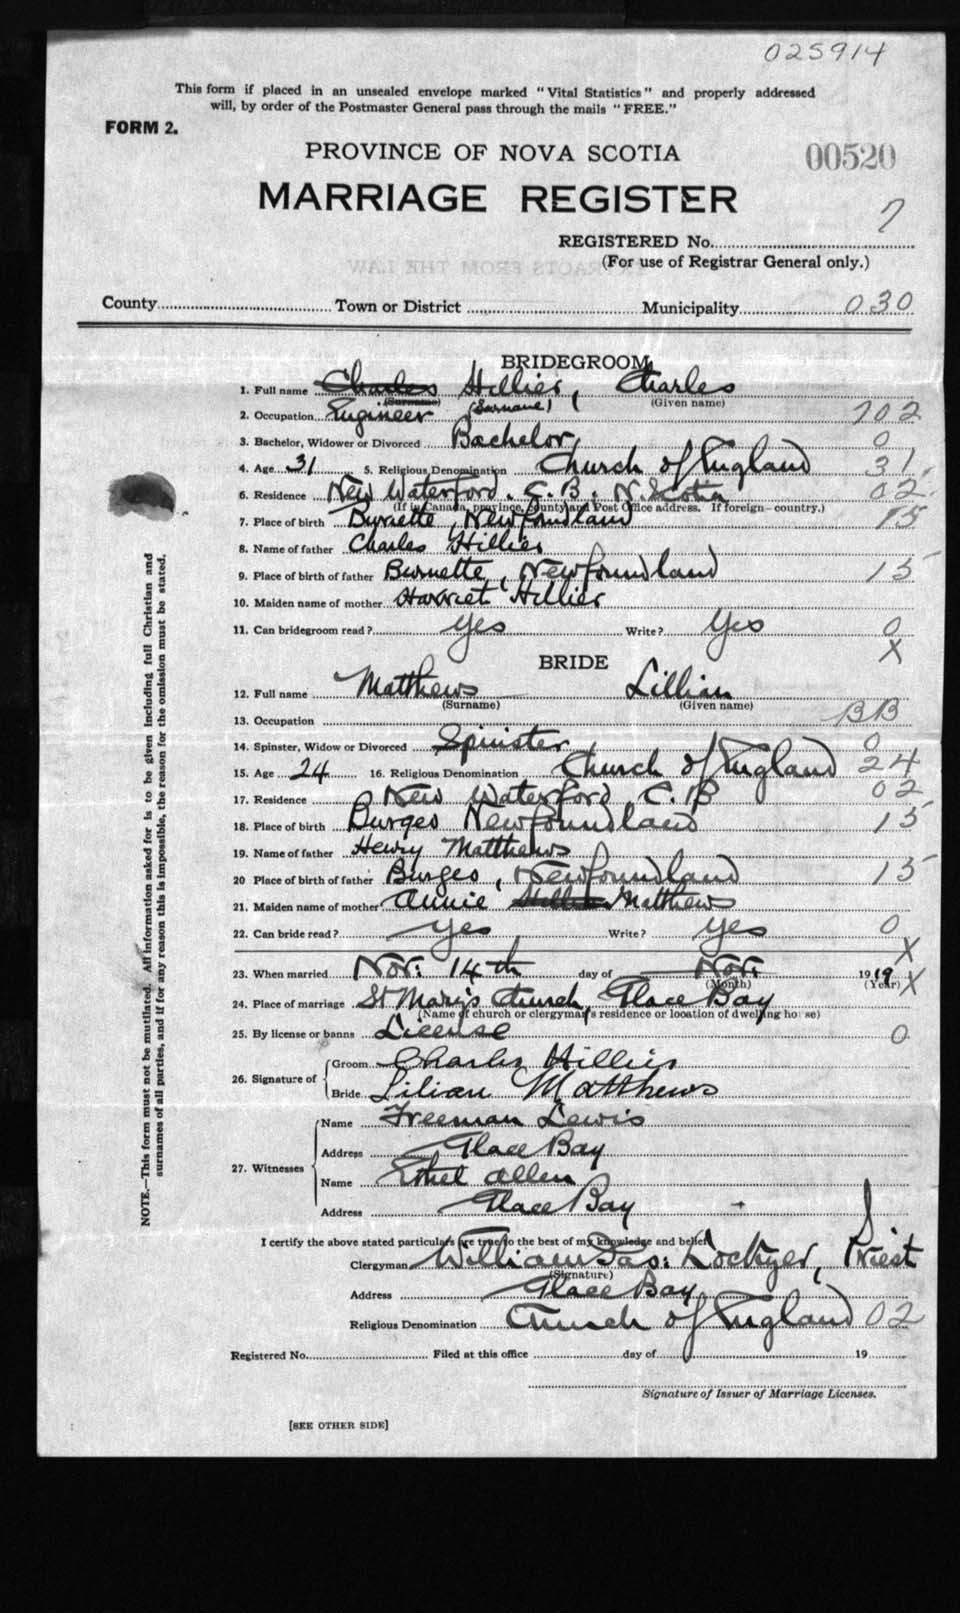 025914
This form if placed in an unsealed envelope marked "Vital Statistics" and properly addressed
will, by order of the Postmaster General pass through the mails "FREE."
FORM 2.
PROVINCE OF NOVA SCOTIA
00520
MARRIAGE REGISTER
REGISTERED No. 7
(For use of Registrar General only.)
County Town or District Municipality 030
BRIDEGROOM
1. Full name Charles Hillier, Charles
(Surname) (Surname) (Given name)
2. Occupation Engineer 702
3. Bachelor, Widower or Divorced Bachelor 0
4. Age 31 5. Religious Denomination Church of England 31
6. Residence New Waterford. C.B. N. Scotia 02
(If in Canada, province, county and Post Office address. If foreign—country.)
7. Place of birth Burnette, Newfoundland 15
8. Name of father Charles Hillier
9. Place of birth of father Burnette, Newfoundland 15
10. Maiden name of mother Harriet Hillier
11. Can bridegroom read? yes Write? yes 0
X
BRIDE
12. Full name Matthews Lillian
(Surname) (Given name)
13. Occupation BB
14. Spinster, Widow or Divorced Spinster 0
15. Age 24 16. Religious Denomination Church of England 24
17. Residence New Waterford C.B 02
18. Place of birth Burgeo Newfoundland 15
19. Name of father Henry Matthews
20 Place of birth of father Burgeo, Newfoundland 15
21. Maiden name of mother Annie Matthews
22. Can bride read? yes Write? yes 0
X
23. When married Nov: 14th day of Nov: 1919 X
(Month) (Year)
24. Place of marriage St Mary's Church, Glace Bay
(Name of church or clergyman's residence or location of dwelling house)
25. By license or banns License 0
26. Signature of Groom Charles Hillier
Bride Lilian Matthews
27. Witnesses Name Freeman Lewis
Address Glace Bay
Name Ethel Allen
Address Glace Bay
I certify the above stated particulars are true to the best of my knowledge and belief
Clergyman William Jas: Lockyer, Priest
(Signature)
Address Glace Bay
Religious Denomination Church of England 02
Registered No. Filed at this office day of 19
Signature of Issuer of Marriage Licenses.
[SEE OTHER SIDE]
NOTE.—This form must not be mutilated. All information asked for is to be given including full Christian and
surnames of all parties, and if for any reason this is impossible, the reason for the omission must be stated.